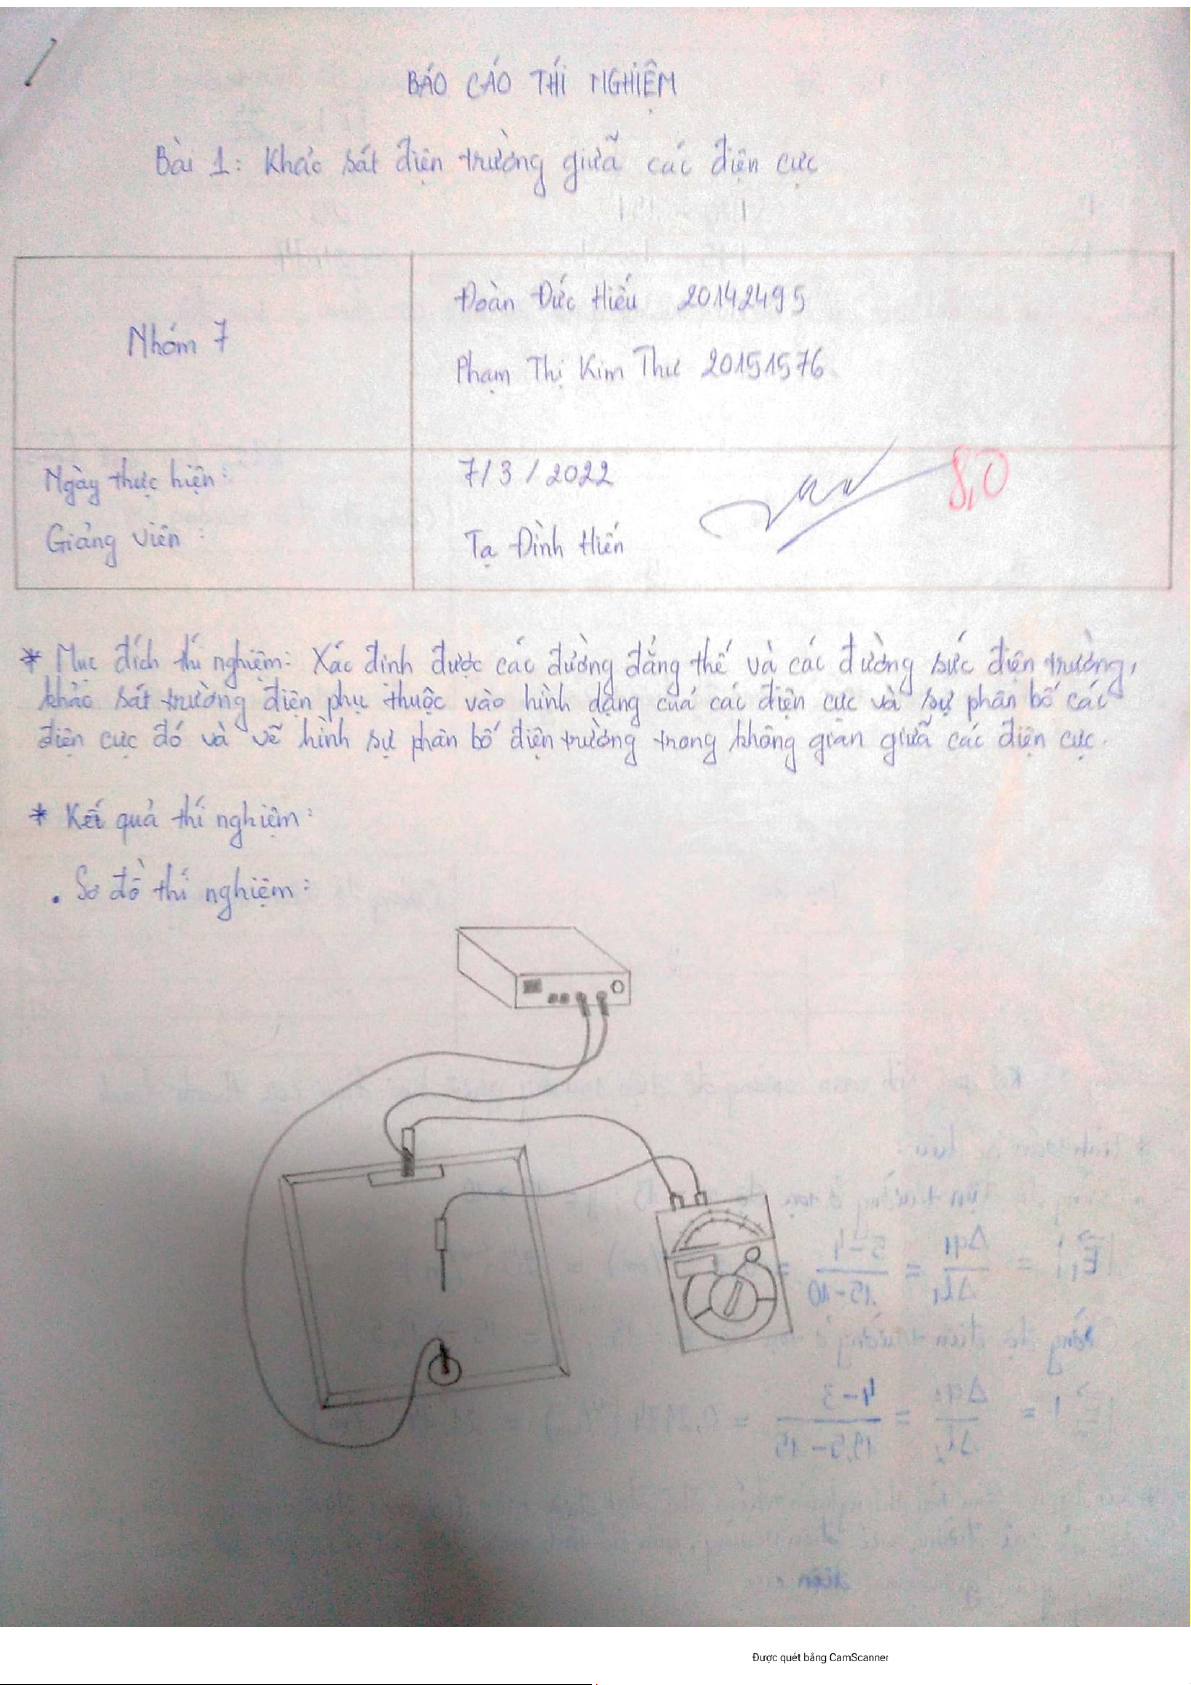 BÁO CÁO THÍ NGHIỆM
Bài 1: Khảo sát điện trường giữa các điện cực
Nhóm 7
Đoàn Đức Hiếu 20142495
Phạm Thị Kim Thư 20151576
Ngày thực hiện: 7/3/2022
8,0
Giảng viên: Tạ Đình Hiến
* Mục đích thí nghiệm: Xác định được các đường đẳng thế và các đường sức điện trường,
khảo sát trường điện phụ thuộc vào hình dạng của các điện cực và sự phân bố các
điện cực đó và vẽ hình sự phân bố điện trường trong không gian giữa các điện cực.
* Kết quả thí nghiệm:
. Sơ đồ thí nghiệm:
Được quét bằng CamScanner